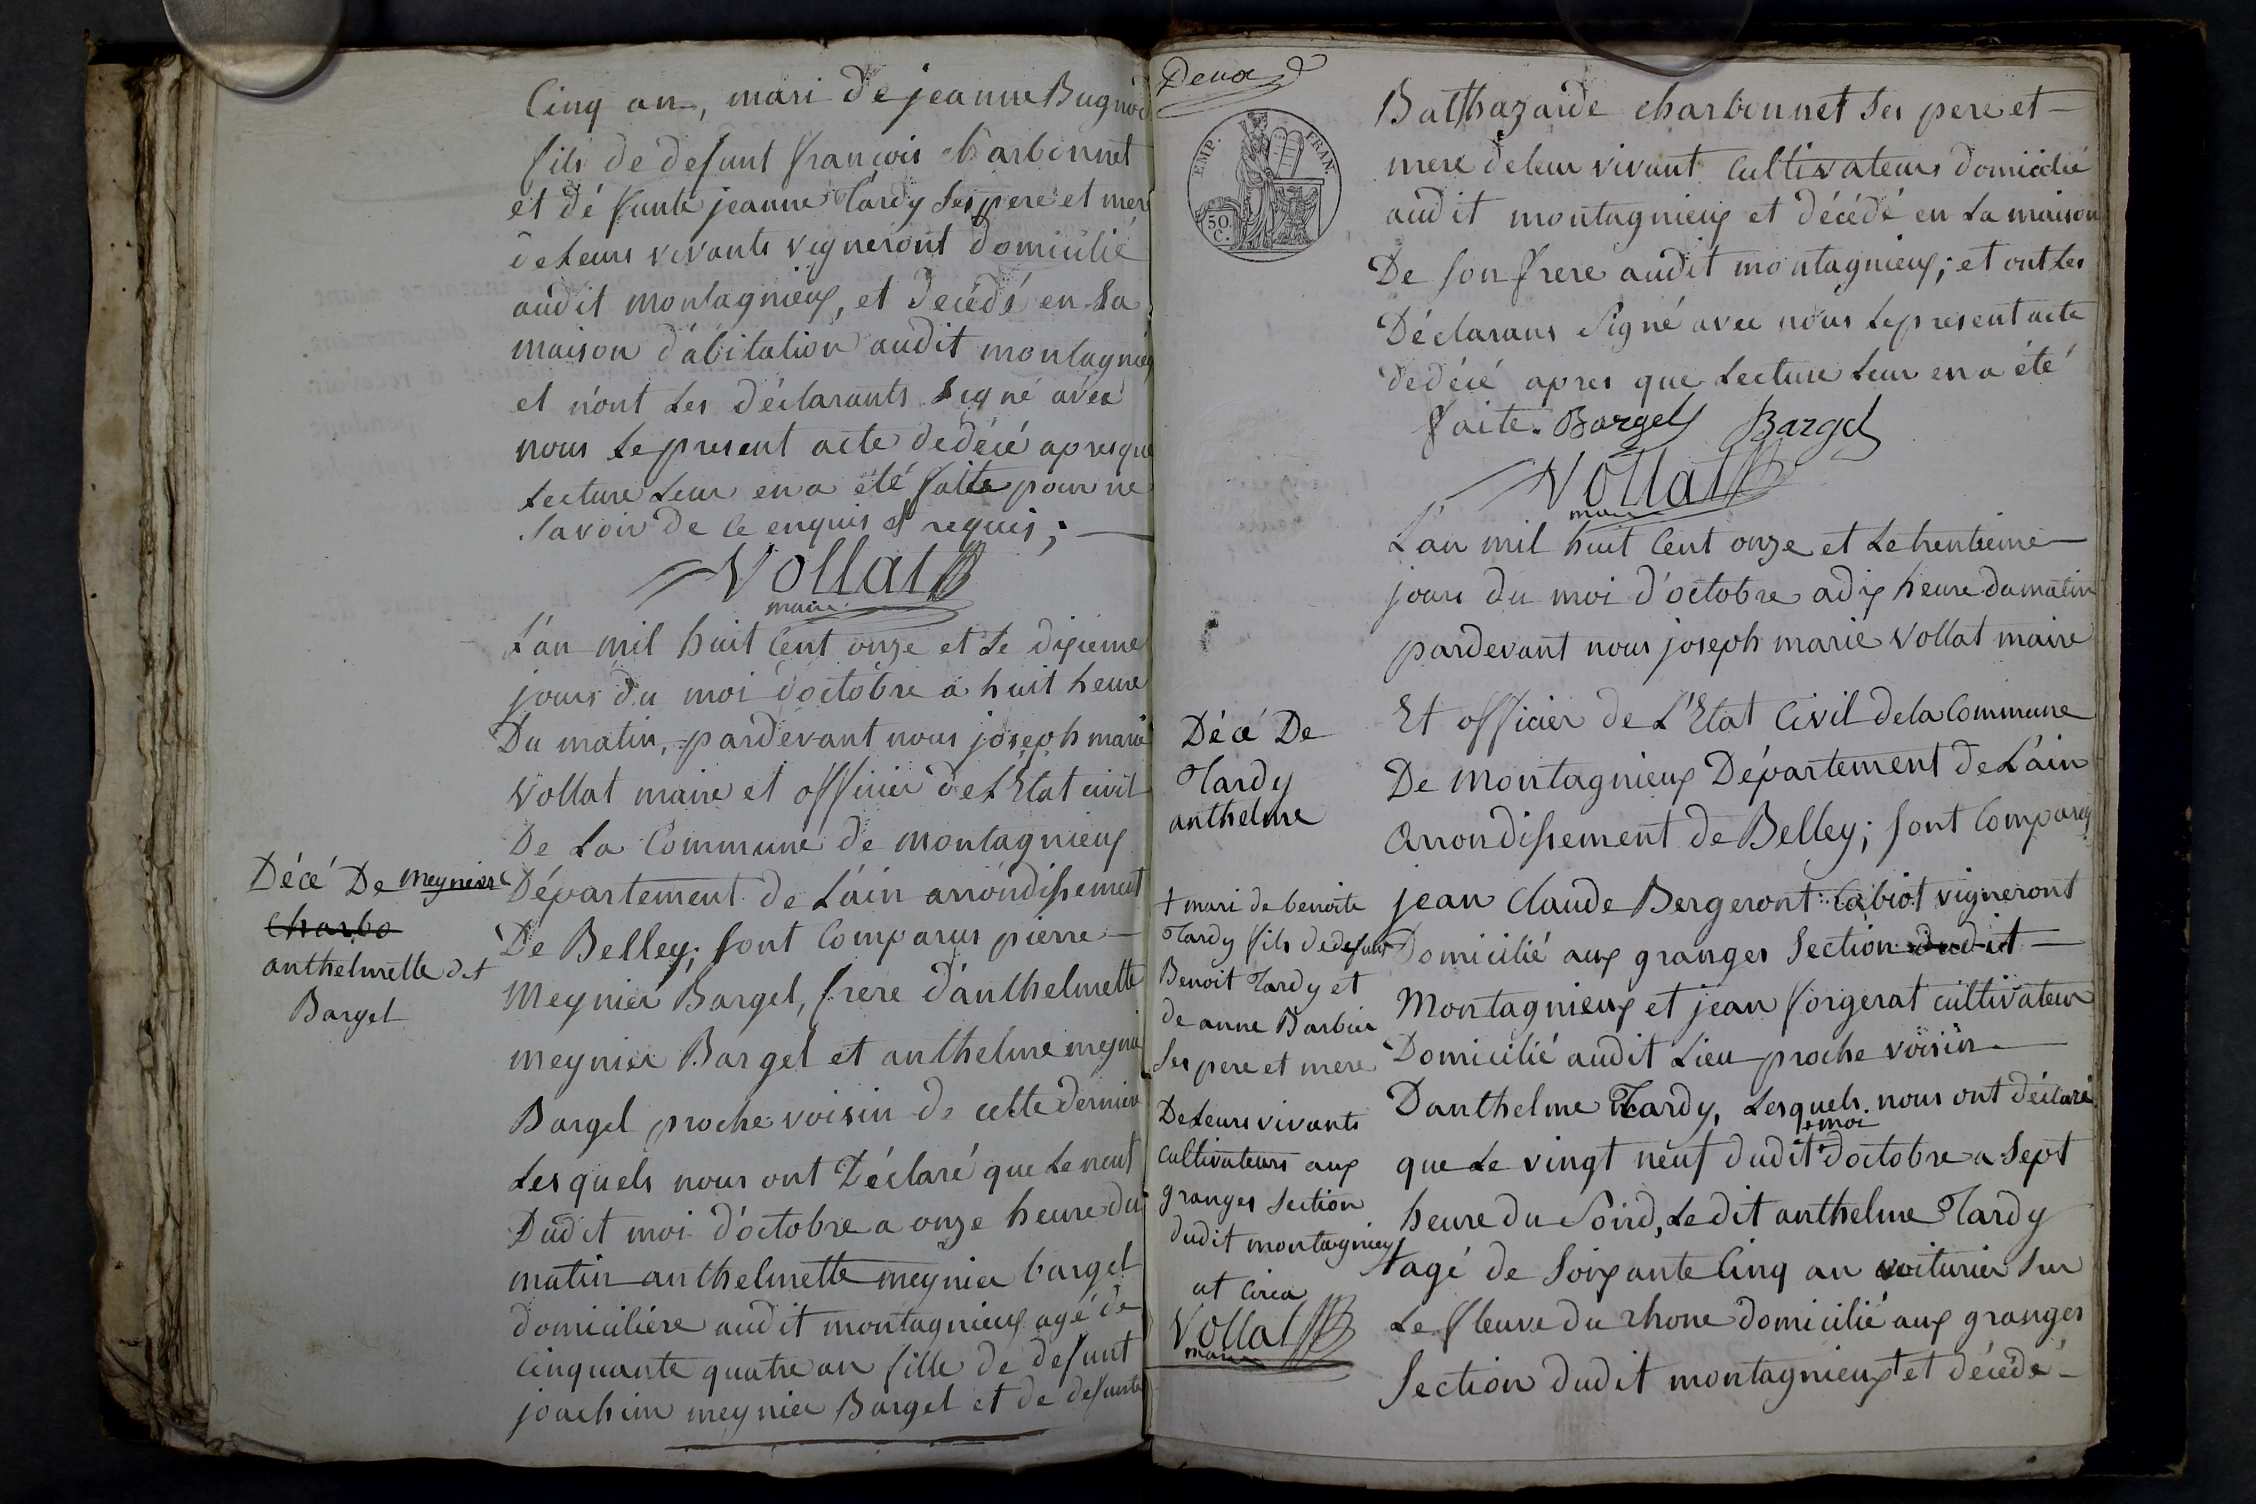 Cinq an, mari de jeanne Bugnod
fils de defunt françois charbonnet
et dé funte jeanne Tardy ses pere et mere
de Leurs vivants vigneront domicilié
audit montagnieux, et decédé en sa
maison d'abitation audit montagnieux
et n'ont Les déclarants signé avec
nous Le present acte dedécé apres que
Lecture Leur en a été faite pour ne
savoir de ce enquis et requis ;
Vollat
maire
L'an mil huit Cent onze et Le dixieme
jours du moi d'octobre a huit heure
Du matin, pardevant nous joseph marie
Vollat maire et officier de L'Etat civil
De La Commune de montagnieux
Décé De meynier
charbo
anthelmette dit
Bargel
Département de L'ain arrondissement
De Belley; sont Comparus pierre
Meynier Bargel, frere d'anthelmette
meynier Bargel et anthelme meynier
Bargel proche voisin de cette derniere
Lesquels nous ont Déclaré que Le neuf
Dudit moi d'octobre a onze heure du
matin anthelmette meynier bargel
domiciliére audit montagnieux agé de
cinquante quatre an fille de defunt
joachim meynier Bargel et de defunte
Deux
EMP. FRAN.
50
C.
Balthazarde charbonnet ses pere et
mere deleur vivant Cultivateurs domicilié
audit montagnieux et décédé en La maison
De son frere audit montagnieux; et ont Les
Déclarans signé avec nous Le present acte
dedécé apres que Lecture Leur en a été
faite. Bargel Bargel
Vollat
maire
L'an mil huit Cent onze et Le trentieme
jours du moi d'octobre a dix heure du matin
pardevant nous joseph marie Vollat maire
Et officier de L'Etat Civil de la Commune
De montagnieux Département de L'ain
Arrondissement de Belley; sont Comparus
Décé De
Tardy
anthelme
jean Claude Bergeront Cabiot vigneront
Domicilié aux granges Section dudit
Montagnieux et jean forgerat cultivateur
Domicilié audit Lieu proche voisin
Danthelme Tardy, Lesquels nous ont déclaré
moi
que Le vingt neuf dudit d'octobre a Sept
heure du Soird, Ledit anthelme Tardy
agé de Soixante Cinq an voiturier sur
Le fleuve du rhone domicilié aux granges
Section dudit montagnieux + et décédé
+ mari de benoite
Tardy fils dedefunt
Benoit Tardy et
de anne Barbier
Ses pere et mere
DeLeurs vivants
Cultivateurs aux
granges Section
dudit montagnieux
Vollat
maire